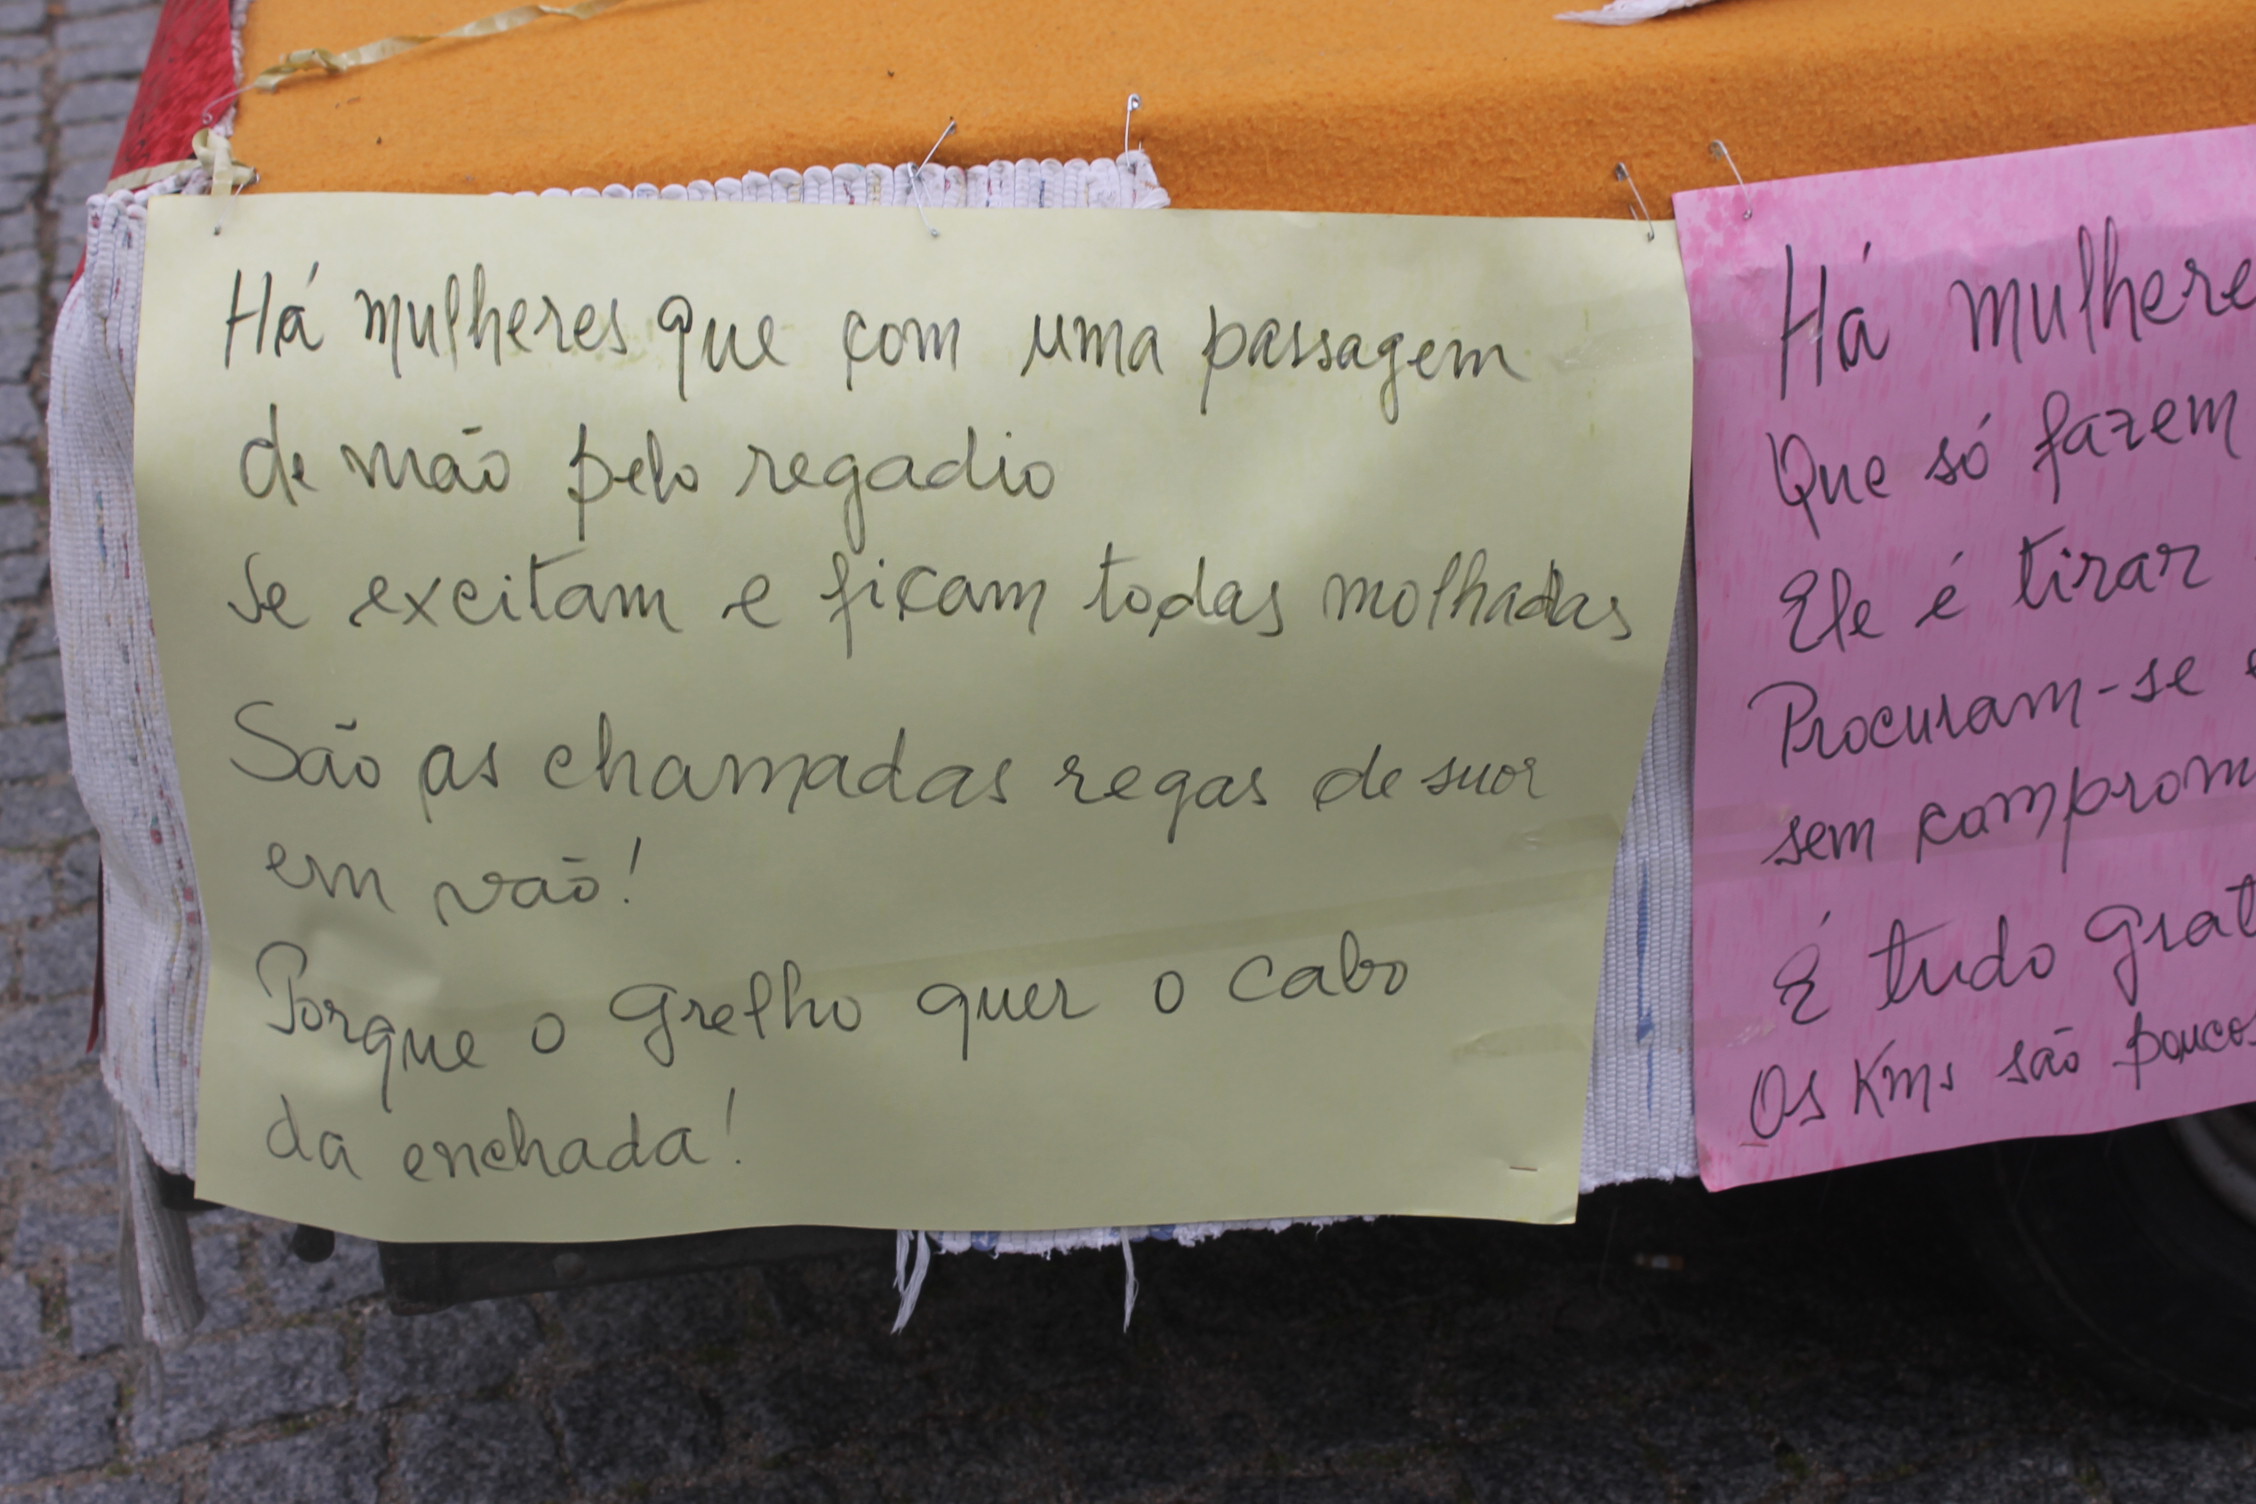 Há mulheres que com uma passagem
de mão pelo regadio
se excitam e ficam todas molhadas
São as chamadas regas de suor
em vão!
Porque o grelho quer o cabo
da enchada!
Há mulhere
Que só fazem
Ele é tirar
Procuram-se
sem comprom
É tudo grat
Os Kms são poucos